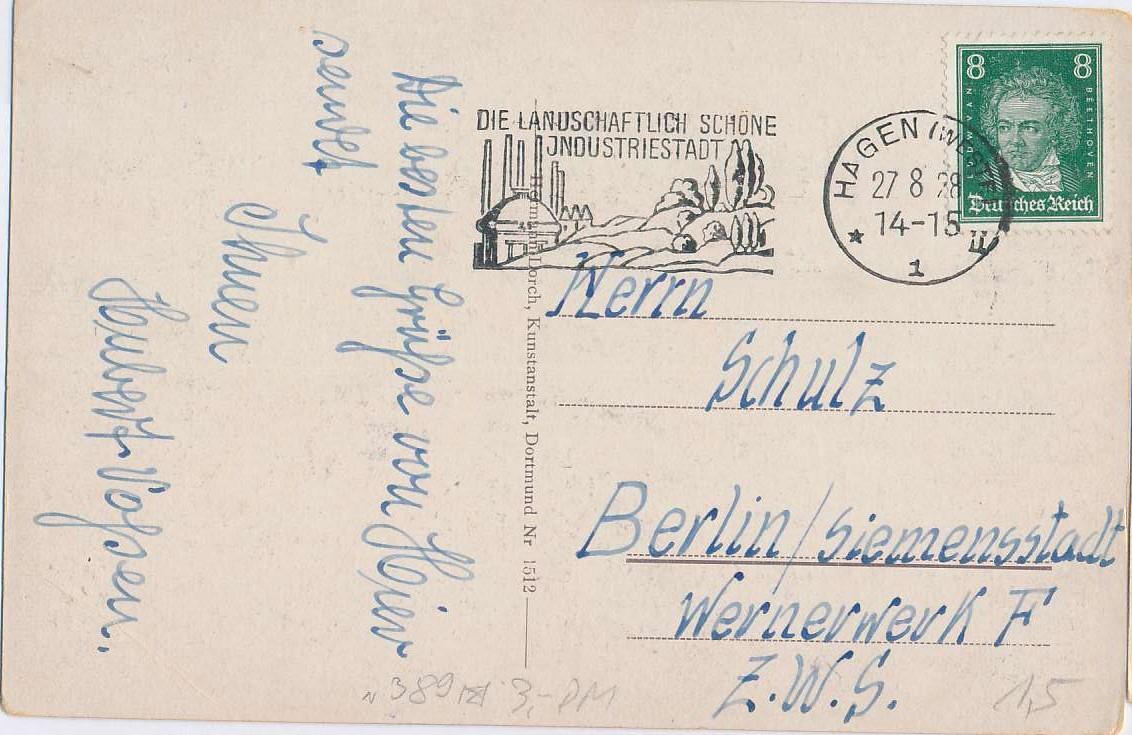 Die besten Grüße von Hier
sendet
Ihnen
Hubert Volpen.
DIE LANDSCHAFTLICH SCHÖNE
INDUSTRIESTADT
HAGEN (WESTF.)
27 8 28
14-15
* 1 II
8 8
LUDWIG VAN BEETHOVEN
Deutsches Reich
Hermann Lorch, Kunstanstalt, Dortmund Nr 1512
Herrn
Schulz
Berlin/Siemensstadt
Wernerwerk F
Z.W.S.
389 3,- DM
1,5